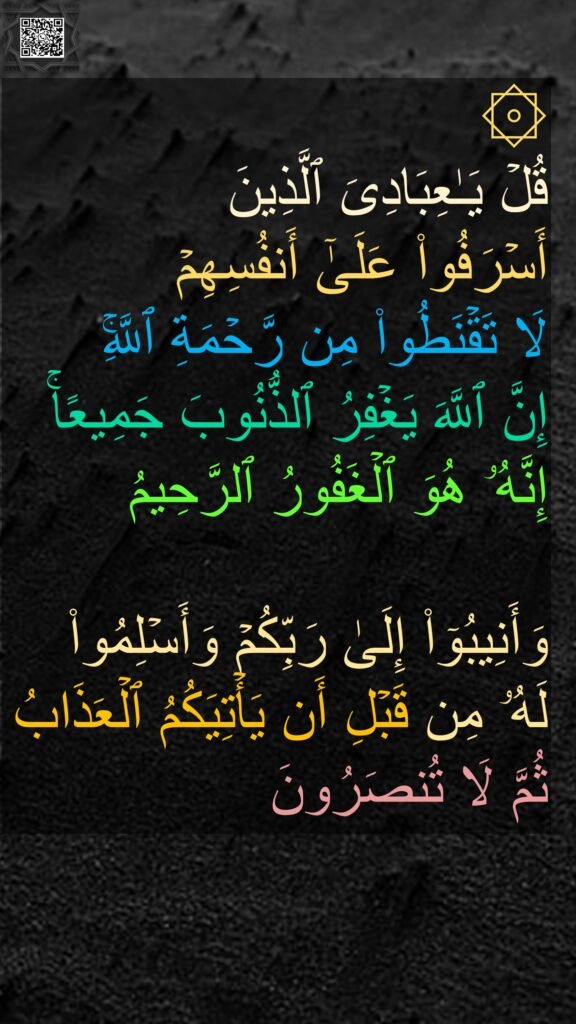 قُلۡ يَـٰعِبَادِىَ ٱلَّذِينَ
أَسۡرَفُواْ عَلَىٰٓ أَنفُسِهِمۡ
لَا تَقۡنَطُواْ مِن رَّحۡمَةِ ٱللَّهِۚ
إِنَّ ٱللَّهَ يَغۡفِرُ ٱلذُّنُوبَ جَمِيعًاۚ
إِنَّهُۥ هُوَ ٱلۡغَفُورُ ٱلرَّحِيمُ
وَأَنِيبُوٓاْ إِلَىٰ رَبِّكُمۡ وَأَسۡلِمُواْ
لَهُۥ مِن قَبۡلِ أَن يَأۡتِيَكُمُ ٱلۡعَذَابُ
ثُمَّ لَا تُنصَرُونَ